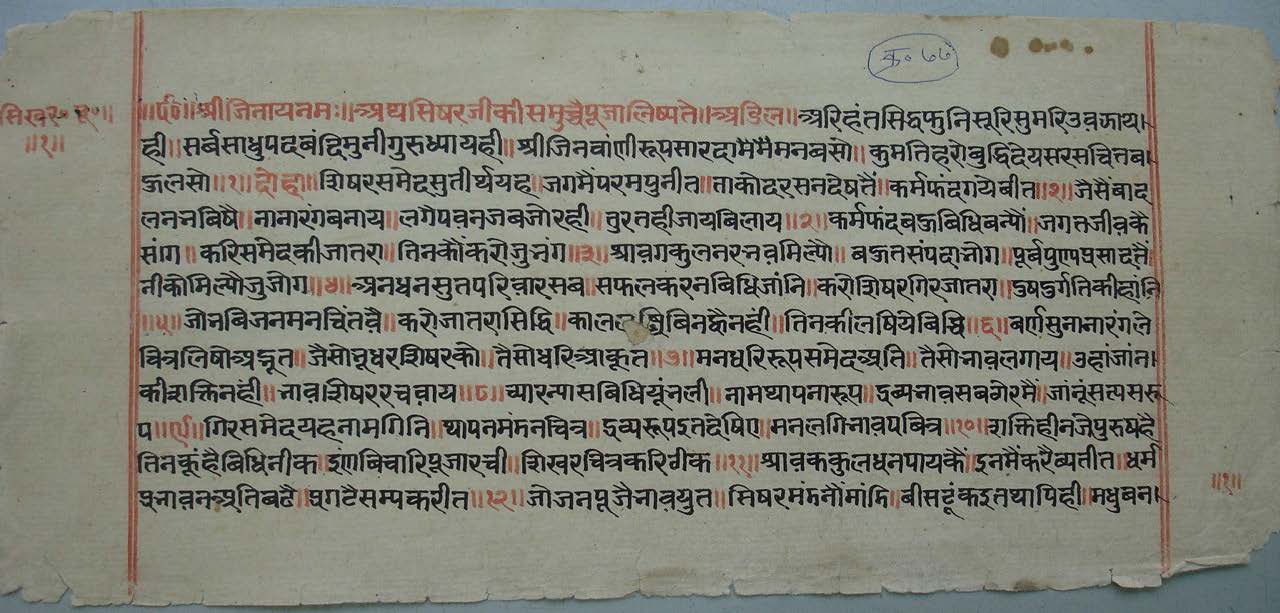 क्र॰ ७७
सिखर॰ पू॰॥
॥१॥
॥र्द०॥ श्रीजिनायनमः॥ अथसिषरजीकीसमुच्चैपूजालिष्यते॥ अडिल॥ अरिहंतसिद्धफुनिसूरिसुमरिउवझाय।
ही॥ सर्बसाधुपदबंदिमुनीगुरुध्यायही॥ श्रीजिनबांणीरूपसारदामेंमेंमनबसो॥ कुमतिहरोबुद्धिदेयसरसचितब।
ऊलसो॥१॥ दोहा॥ शिषरसमेदसुतीर्थयह॥ जगमैंपरमपुनीत॥ ताकोदरसनदेषतैं॥ कर्मफंदगयेबीत॥२॥ जैसैंबाद
लननबिषै॥ नानारंगबनाय॥ लगैपवनजबजोरही॥ तुरतहीजायबिलाय॥२॥ कर्मफंदबऊबिधिबन्यौं॥ जगतजीवकै
सांग॥ करिसमेदकीजातरा॥ तिनकौंकरोजुनंग॥३॥ श्रावगकुलनरनवमिल्यौ॥ बऊतसंपदानोग॥ पूर्बपुण्यप्रसादतैं
नीकोमिल्यौजुजोग॥४॥ अनधनसुतपरिवारसब॥ सफलकरनबिधिजांनि॥ करोशिषरगिरजातरा॥ दुषदुर्गतिकीहांनि
॥५॥ जोनबिजनमनचिंतवै॥ करोजातरासिद्धि॥ काललब्धिबिनह्वैनहीं॥ तिनकीलषियेबिधि॥६॥ बर्णसुनानारंगले
चित्रलिषोअद्भूत॥ जैसोभूधरशिषरको॥ तैसोधरिआकूत॥७॥ मनधरिरूपसमेदअति॥ तैसोनावलगाय॥ उहांजांन।
कीशक्तिनहीं॥ नावशिषररचवाय॥८॥ च्यारन्यासबिधियूंनली॥ नामथापनारूप॥ द्रव्यनावसबगेरमैं॥ जांनूंसत्यसरू
प॥९॥ गिरसमेदयहनामगिनि॥ थापनमंडनचित्र॥ द्रव्यरूपइतदेषिए॥ मनलगिनावपबित्र॥१०॥ शक्तिहीनजेपुरुषहै
तिनकूंहैबिधिनीक॥ इणबिचारिपूजारची॥ शिखरचित्रकरिठीक॥११॥ श्रावककुलधनपायकैं॥ इनमैंकरैव्यतीत॥ धर्म
प्रनावनअतिबढै॥ प्रगटैसम्यकरीत॥१२॥ जोजनपूजैनावयुत॥ सिषरमंडनौंमांडि॥ बीसटूंकइतथापिही॥ मधुबन।
॥१॥